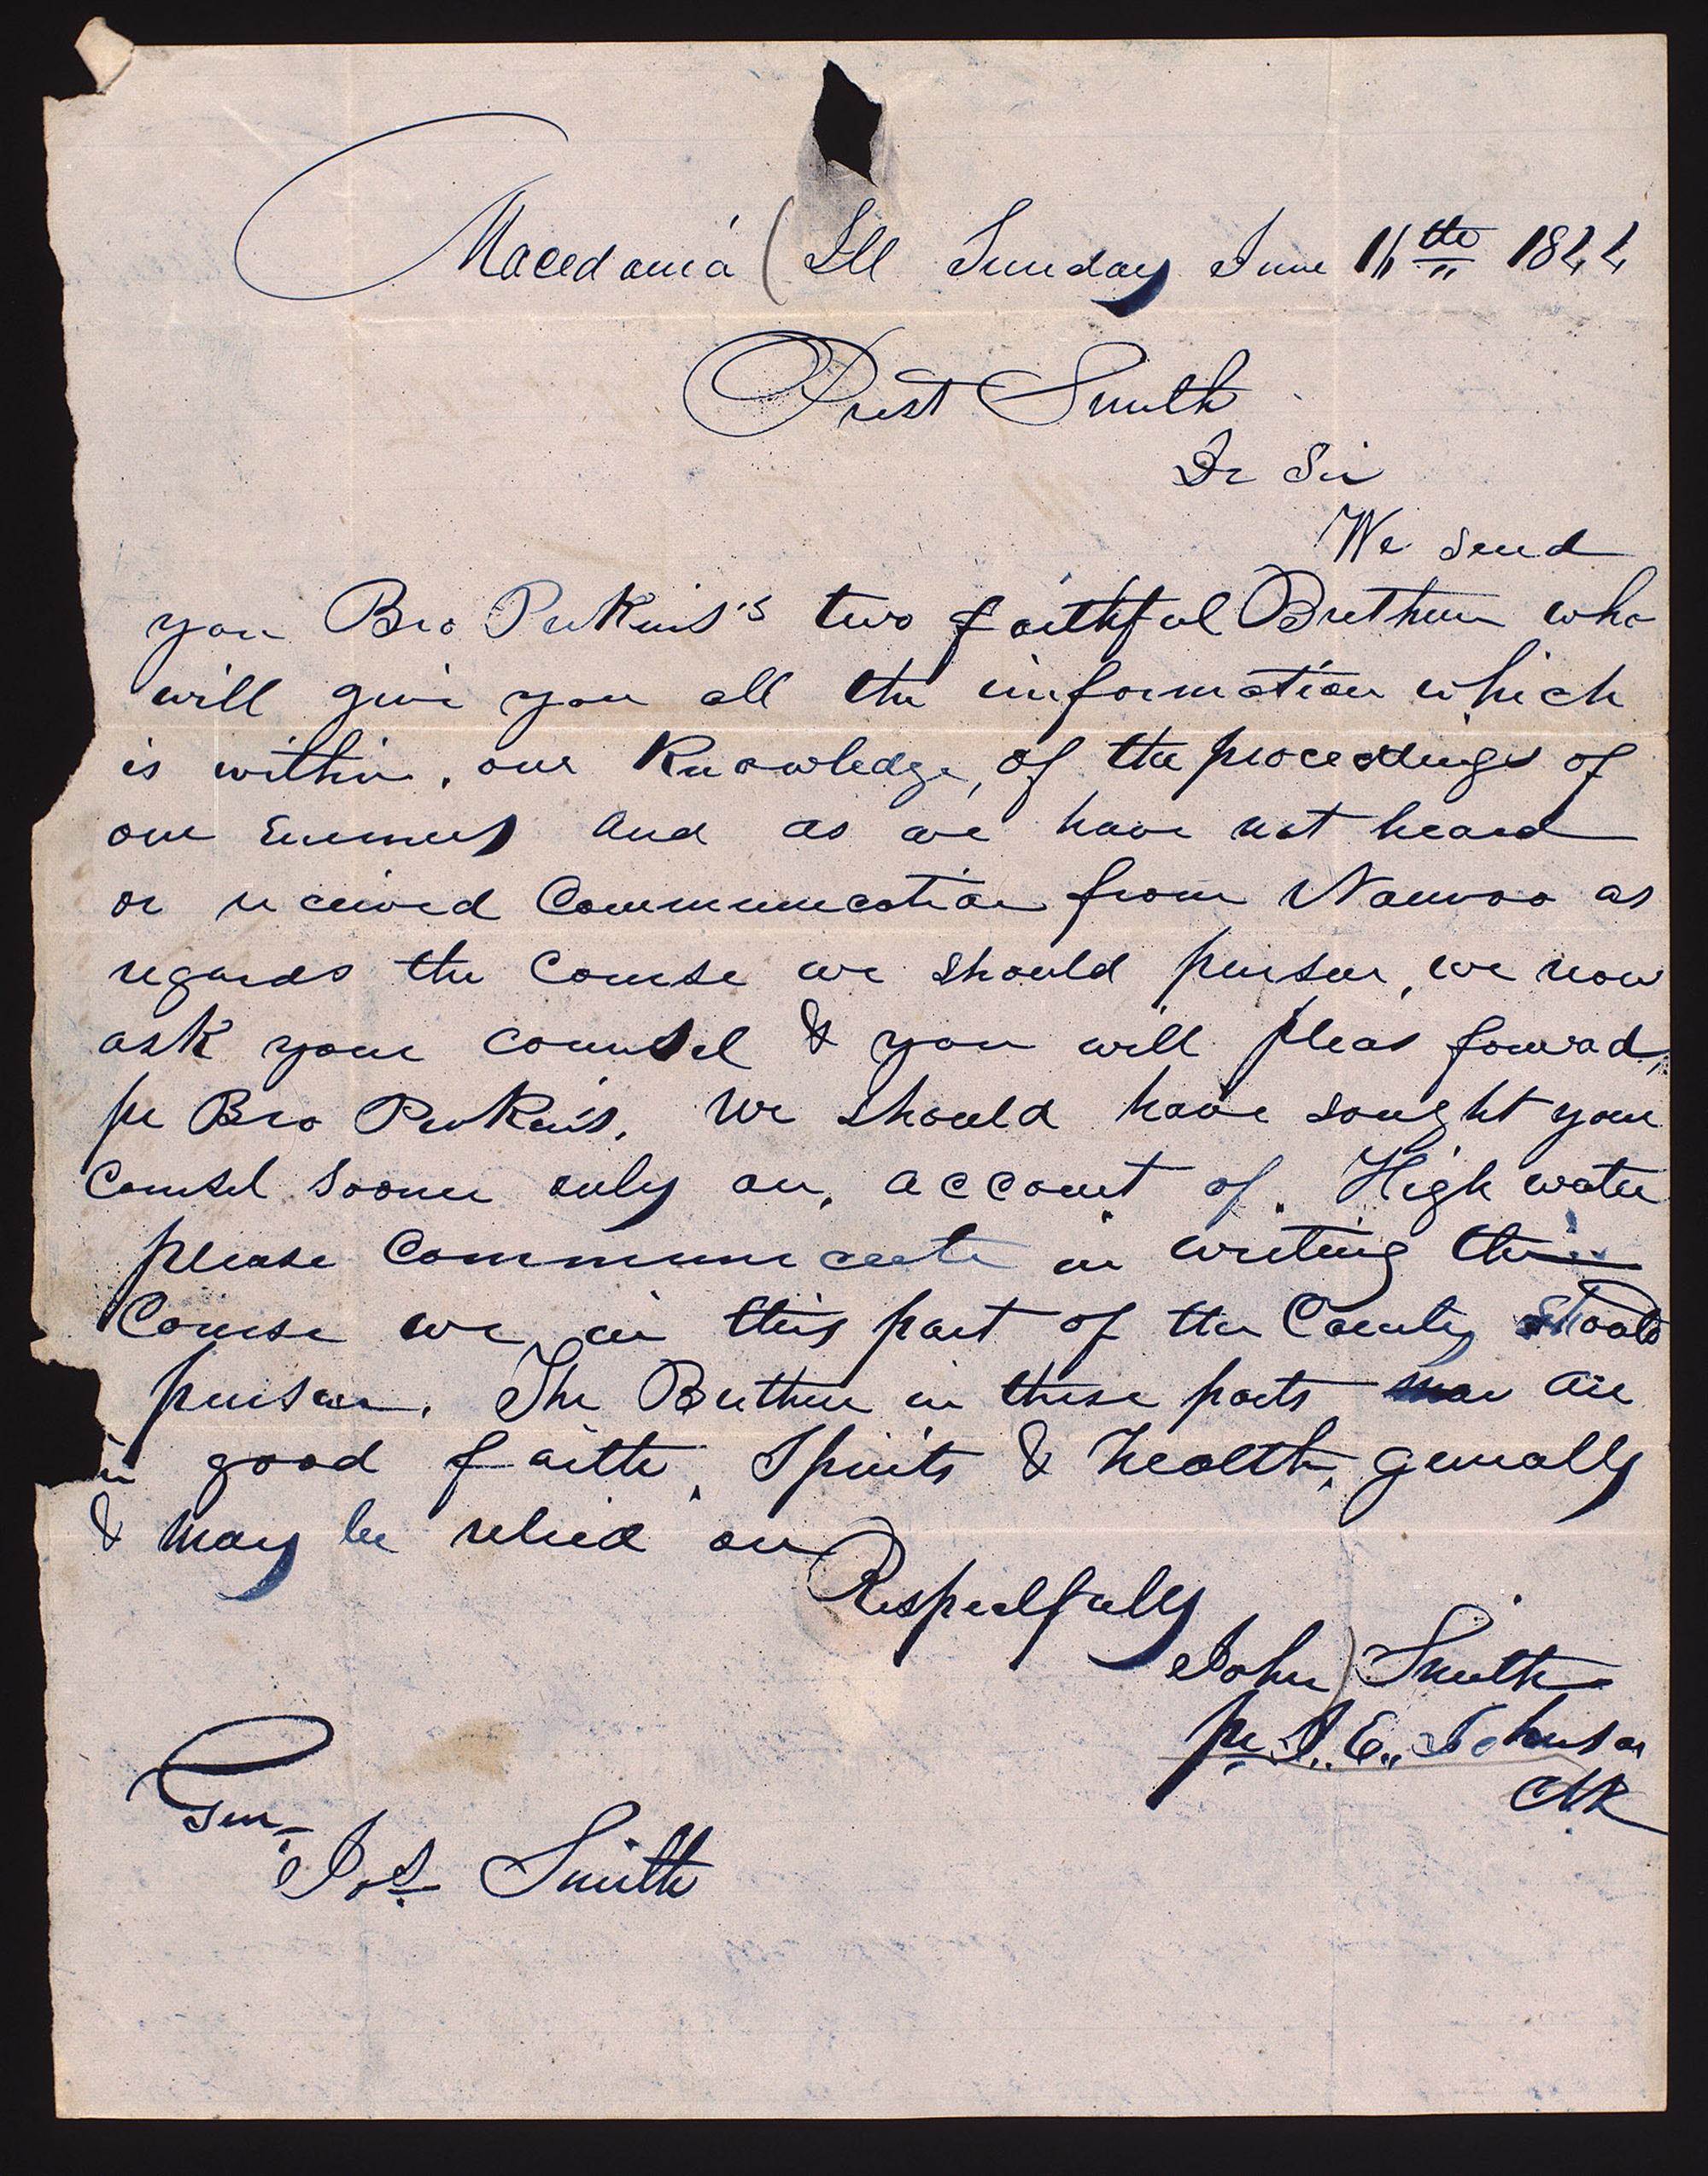 Macedonia (Ill Sunday June 16th 1844
Prest Smith
Dr Sir
We send
you Bro Perkins's two faithful Brethren who
will give you all the information which
is within, our Knowledge, of the proceedings of
our Enemies and as we have not heard
or received Communication from Nauvoo as
regards the Course we should pursue, we now
ask your counsel & you will pleas forward,
pr Bro Perkins. We should have sought your
Counsel sooner only on, account of. High water
please Communicate in writing the
Course we in this part of the County should
pursue. The Brethren in these parts are
in good faith, Spirits & health, generally
& may be relied on
Respectfully
John Smith
pr J. E. Johnson
Clk
Gen.
Jos. Smith